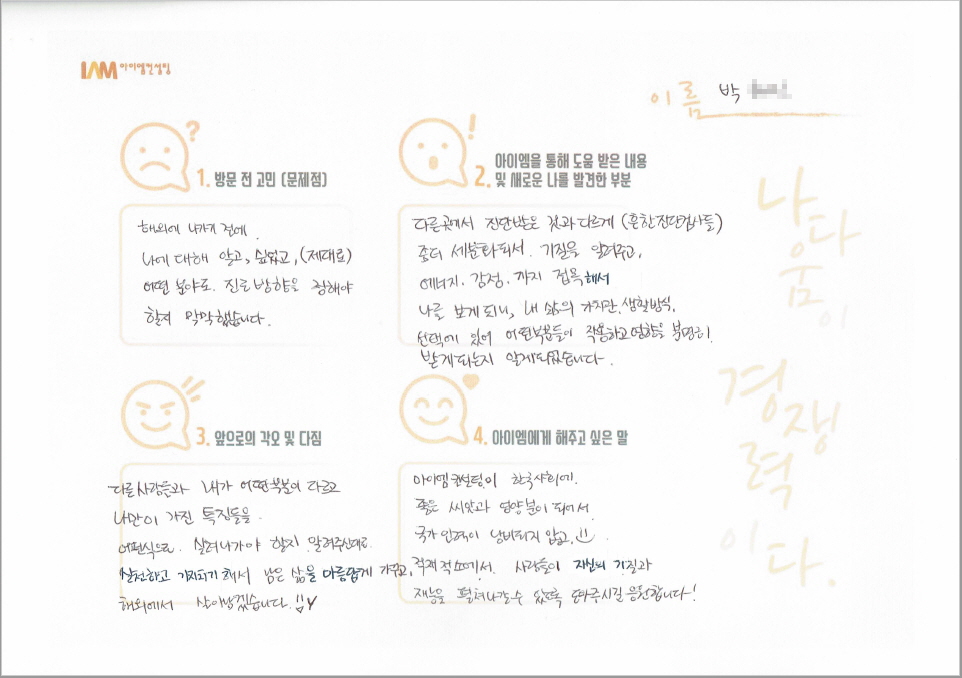 IAM 아이엠컨설팅
이름 박
1. 방문 전 고민 (문제점)
해외에 나가기 전에.
나에 대해 알고, 싶었고, (제대로)
어떤 분야로. 진로방향을 정해야
할지 막막했습니다.
2. 아이엠을 통해 도움 받은 내용
및 새로운 나를 발견한 부분
다른곳에서 진단받은 것과 다르게 (흔한 진단검사들)
좀더 세분화되서. 기질을 알려주고,
에너지. 감정. 까지 접목해서
나를 보게되니, 내 삶의 가치관. 생활방식.
선택에 있어 어떤부분들이 작용하고 영향을 분명히.
받게되는지 알게되었습니다.
3. 앞으로의 각오 및 다짐
다른사람들과 내가 어떤부분이 다르고
나만이 가진 특징들을.
어떤식으로. 살려나가야 할지 알려주신대로.
실천하고 가지치기해서 남은 삶을 아름답게 가꾸고,
해외에서 살아남겠습니다.
4. 아이엠에게 해주고 싶은 말
아이엠컨설팅이 한국사회에.
좋은 씨앗과 영양분이 되어서.
국가인력이 낭비되지 않고.
적재적소에서. 사람들이 자신의 기질과
재능을 펼쳐나갈수 있도록 도와주시길 응원합니다!
나다움이
경쟁력이다.